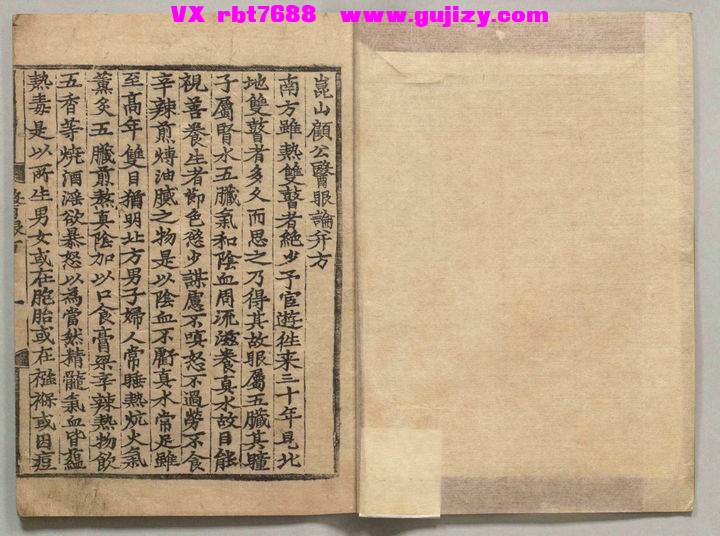 VX rbt7688 www.gujizy.com
崑山顧公醫眼論并方
南方雖熱雙瞽者絕少予官遊徃来三十年見北
地雙瞽者多久而思之乃得其故眼屬五臟其瞳
子屬腎水五臟氣和陰血周流滋養真水故目能
視善養生者節色慾少謀慮不嗔怒不過勞不食
辛辣煎煿油膩之物是以陰血不虧真水常足雖
至高年雙目猶明北方男子婦人常睡熱炕火氣
薰炙五臟煎熬真陰加以口食膏粱辛辣熱物飲
五香等燒酒淫欲暴怒以為當然精髓氣血皆蘊
熱毒是以所生男女或在胞胎或在襁褓或因痘